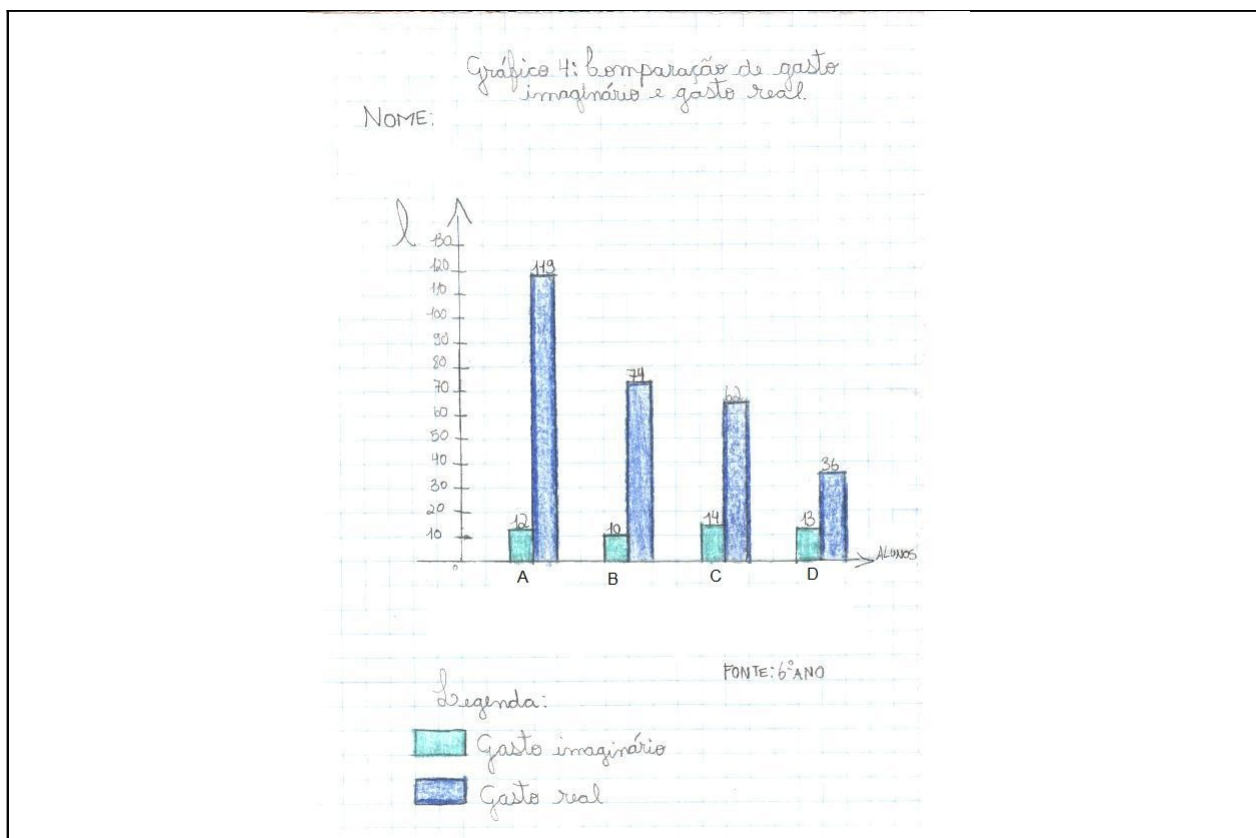 Gráfico 4: Comparação de gasto
imaginário e gasto real.
NOME:
l
130
120
110
100
90
80
70
60
50
40
30
20
10
0
119
74
62
36
12
10
14
13
ALUNOS
A B C D
FONTE: 6º ANO
Legenda:
Gasto imaginário
Gasto real